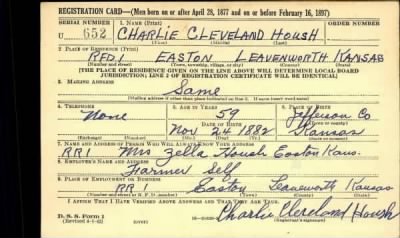 REGISTRATION CARD—(Men born on or after April 28, 1877 and on or before February 16, 1897)
SERIAL NUMBER 1. NAME (Print)
U 652 CHARLIE CLEVELAND HOUSH
(First) (Middle) (Last)
2. PLACE OF RESIDENCE (Print)
RFD.1 EASTON LEAVENWORTH KANSAS
(Number and street) (Town, township, village, or city) (County) (State)
[THE PLACE OF RESIDENCE GIVEN ON THE LINE ABOVE WILL DETERMINE LOCAL BOARD
JURISDICTION; LINE 2 OF REGISTRATION CERTIFICATE WILL BE IDENTICAL]
3. MAILING ADDRESS
Same
[Mailing address if other than place indicated on line 2. If same insert word same]
4. TELEPHONE 5. AGE IN YEARS 6. PLACE OF BIRTH
None 59 Jefferson Co
DATE OF BIRTH
Nov 24 1882 Kansas
(Exchange) (Number) (Mo.) (Day) (Yr.) (State or country)
7. NAME AND ADDRESS OF PERSON WHO WILL ALWAYS KNOW YOUR ADDRESS
RR1 Mrs Zella Housh Easton Kans.
8. EMPLOYER'S NAME AND ADDRESS
Farmer Self
9. PLACE OF EMPLOYMENT OR BUSINESS
RR1 Easton Leavenworth Kansas
(Number and street or R. F. D. number) (Town) (County) (State)
I AFFIRM THAT I HAVE VERIFIED ABOVE ANSWERS AND THAT THEY ARE TRUE.
D. S. S. Form 1
(Revised 4-1-42)
Charlie Cleveland Housh